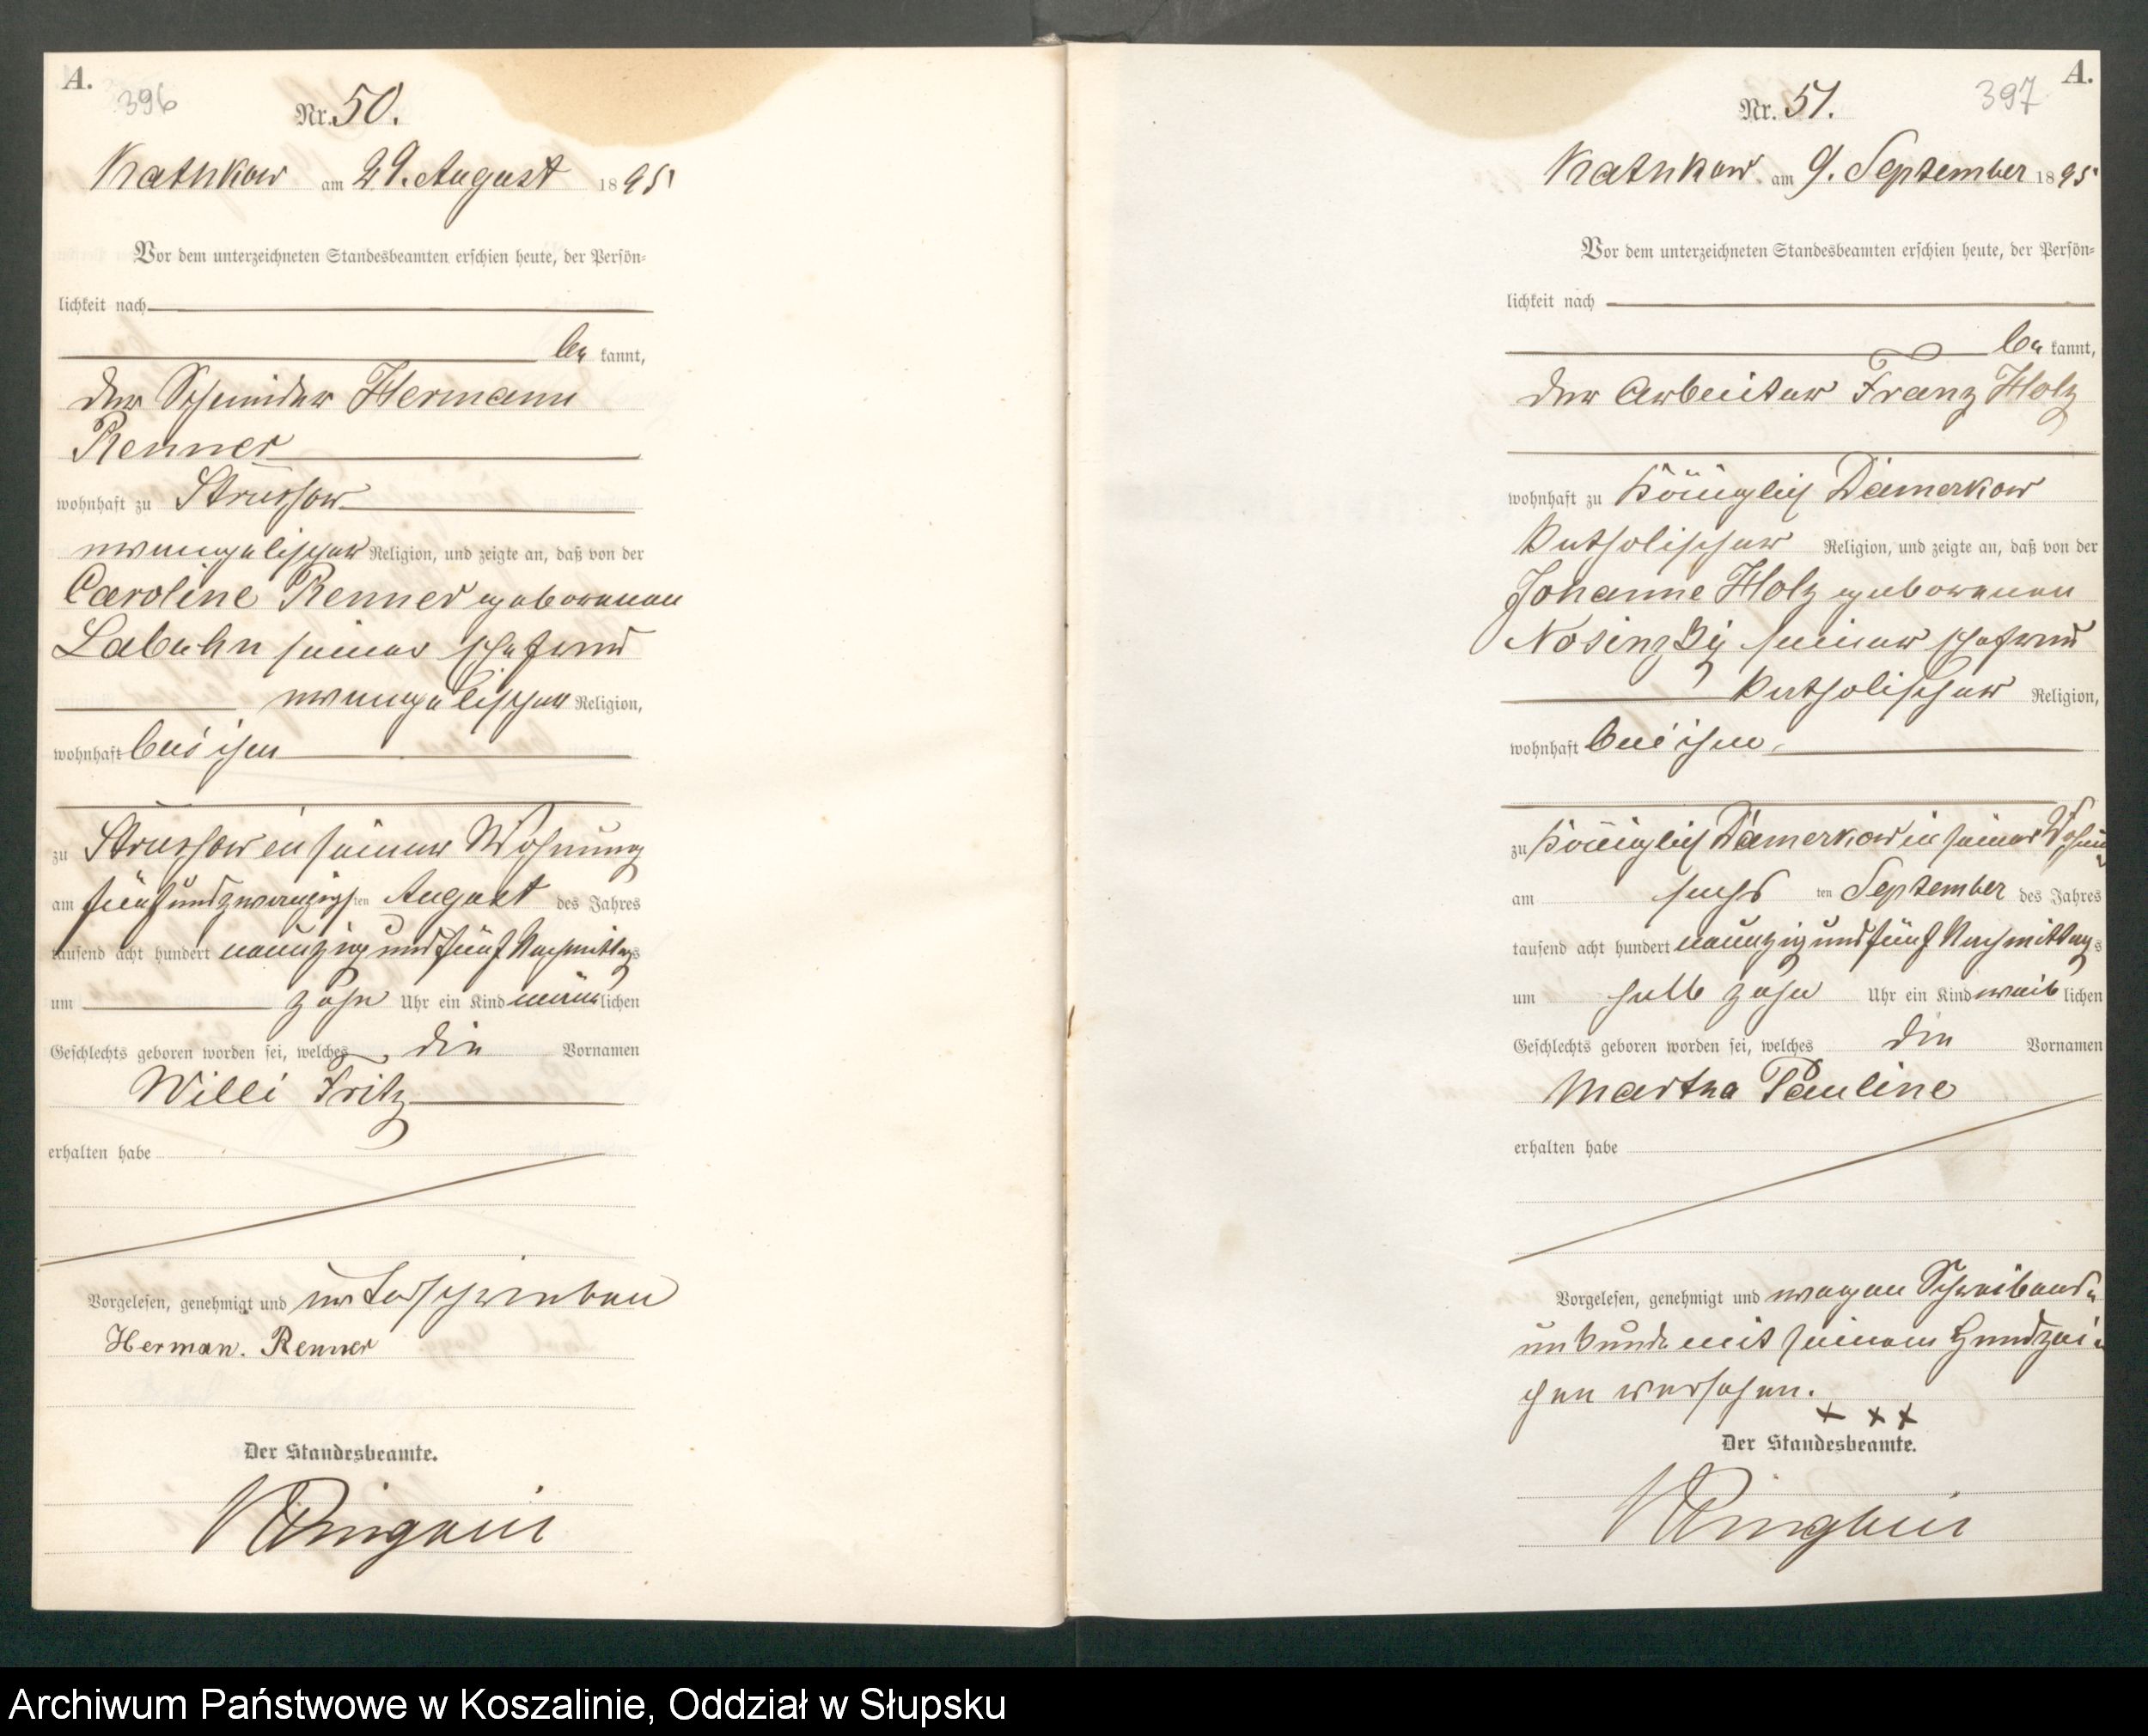 A.
396
Nr. 50.
Kathkow am 29. August 1895
Vor dem unterzeichneten Standesbeamten erschien heute, der Persön-
lichkeit nach
be kannt,
der Schneider Hermann
Renner
wohnhaft zu Strussow
evangelischer Religion, und zeigte an, daß von der
Caroline Renner geborenen
Labuhn seiner Ehefrau
evangelischer Religion,
wohnhaft bei ihm
zu Strussow in seiner Wohnung
am fünfundzwanzigsten August des Jahres
tausend acht hundert neunzig und fünf Nachmittags
um zehn Uhr ein Kind männlichen
Geschlechts geboren worden sei, welches die Vornamen
Willi Fritz
erhalten habe
Vorgelesen, genehmigt und unterschrieben
Herman. Renner
Der Standesbeamte.
A.
397
Nr. 51.
Kathkow am 9. September 1895
Vor dem unterzeichneten Standesbeamten erschien heute, der Persön-
lichkeit nach
be kannt,
der Arbeiter Franz Holz
wohnhaft zu Königlich Damerkow
katholischer Religion, und zeigte an, daß von der
Johanne Holz geborenen
Nosinzky seiner Ehefrau
katholischer Religion,
wohnhaft bei ihm,
zu Königlich Damerkow in seiner Wohnung
am sechs ten September des Jahres
tausend acht hundert neunzig und fünf Nachmittags
um halb zehn Uhr ein Kind weiblichen
Geschlechts geboren worden sei, welches die Vornamen
Martha Pauline
erhalten habe
Vorgelesen, genehmigt und wegen Schreibens-
unkunde mit seinem Handzei-
chen versehen.
+ + +
Der Standesbeamte.
Archiwum Państwowe w Koszalinie, Oddział w Słupsku